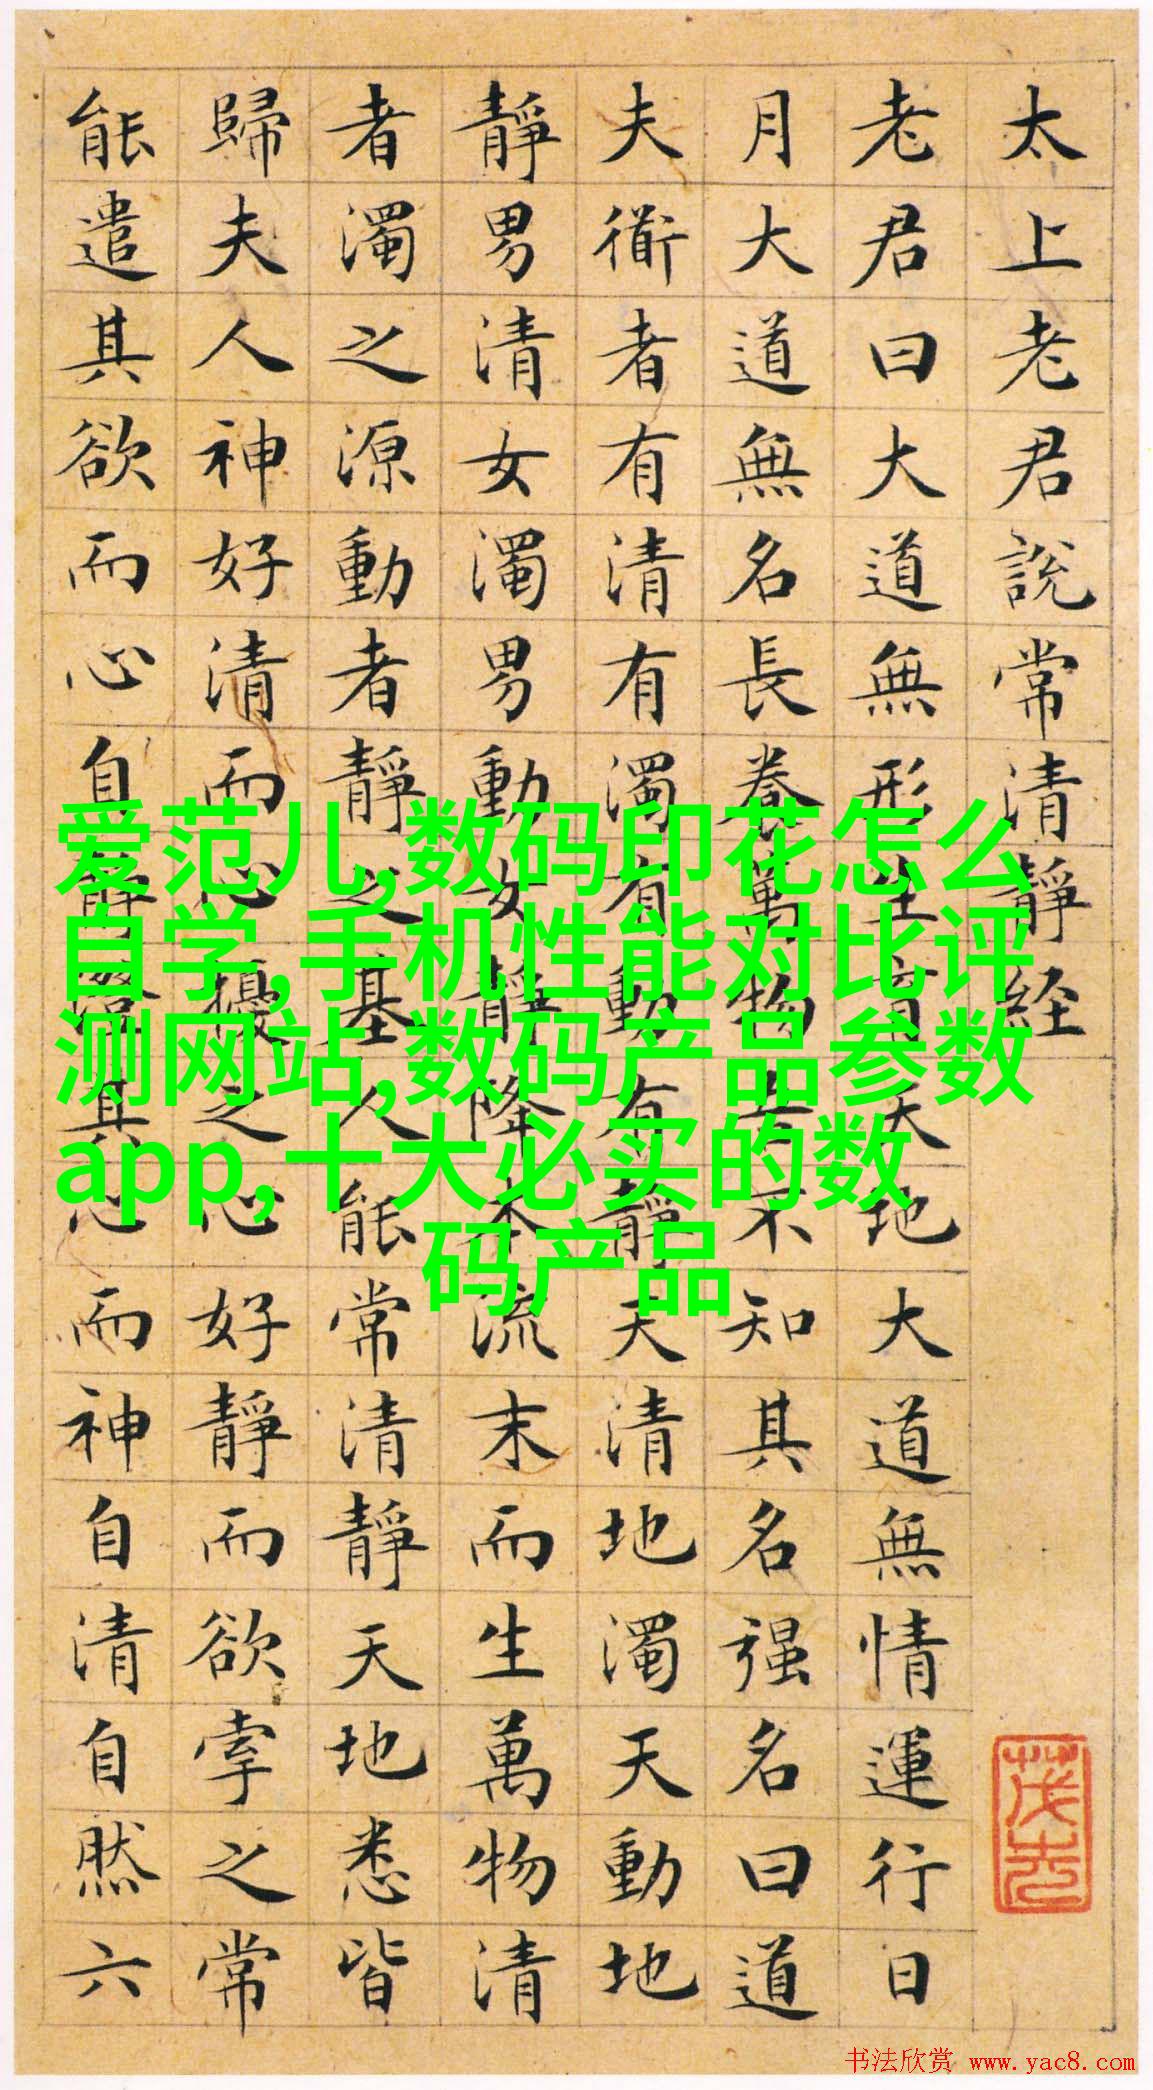 太上老君說常清靜経
老君曰大道無形生育天地大道無情運行日
月大道無名長養萬物吾不知其名强名曰道
夫衜者有清有濁有動有靜天清地濁天動地
靜男清女濁男動女靜降本流末而生萬物清
者濁之源動者靜之基人能常清靜天地悉皆
歸夫人神好清而心擾之心好靜而欲牽之常
能遣其欲而心自靜澄其心而神自清自然六
爱范儿,数码印花怎么
自学,手机性能对比评
测网站,数码产品参数
app,十大必买的数
码产品
书法欣赏 www.yac8.com